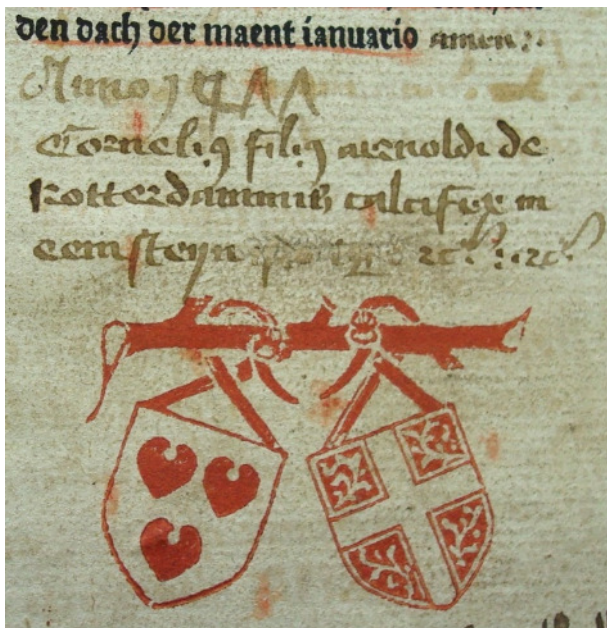 den dach der maent ianuario amen
Anno 1477
Cornelius filius arnoldi de
Rotterdammis calcifex in
eemsteyn